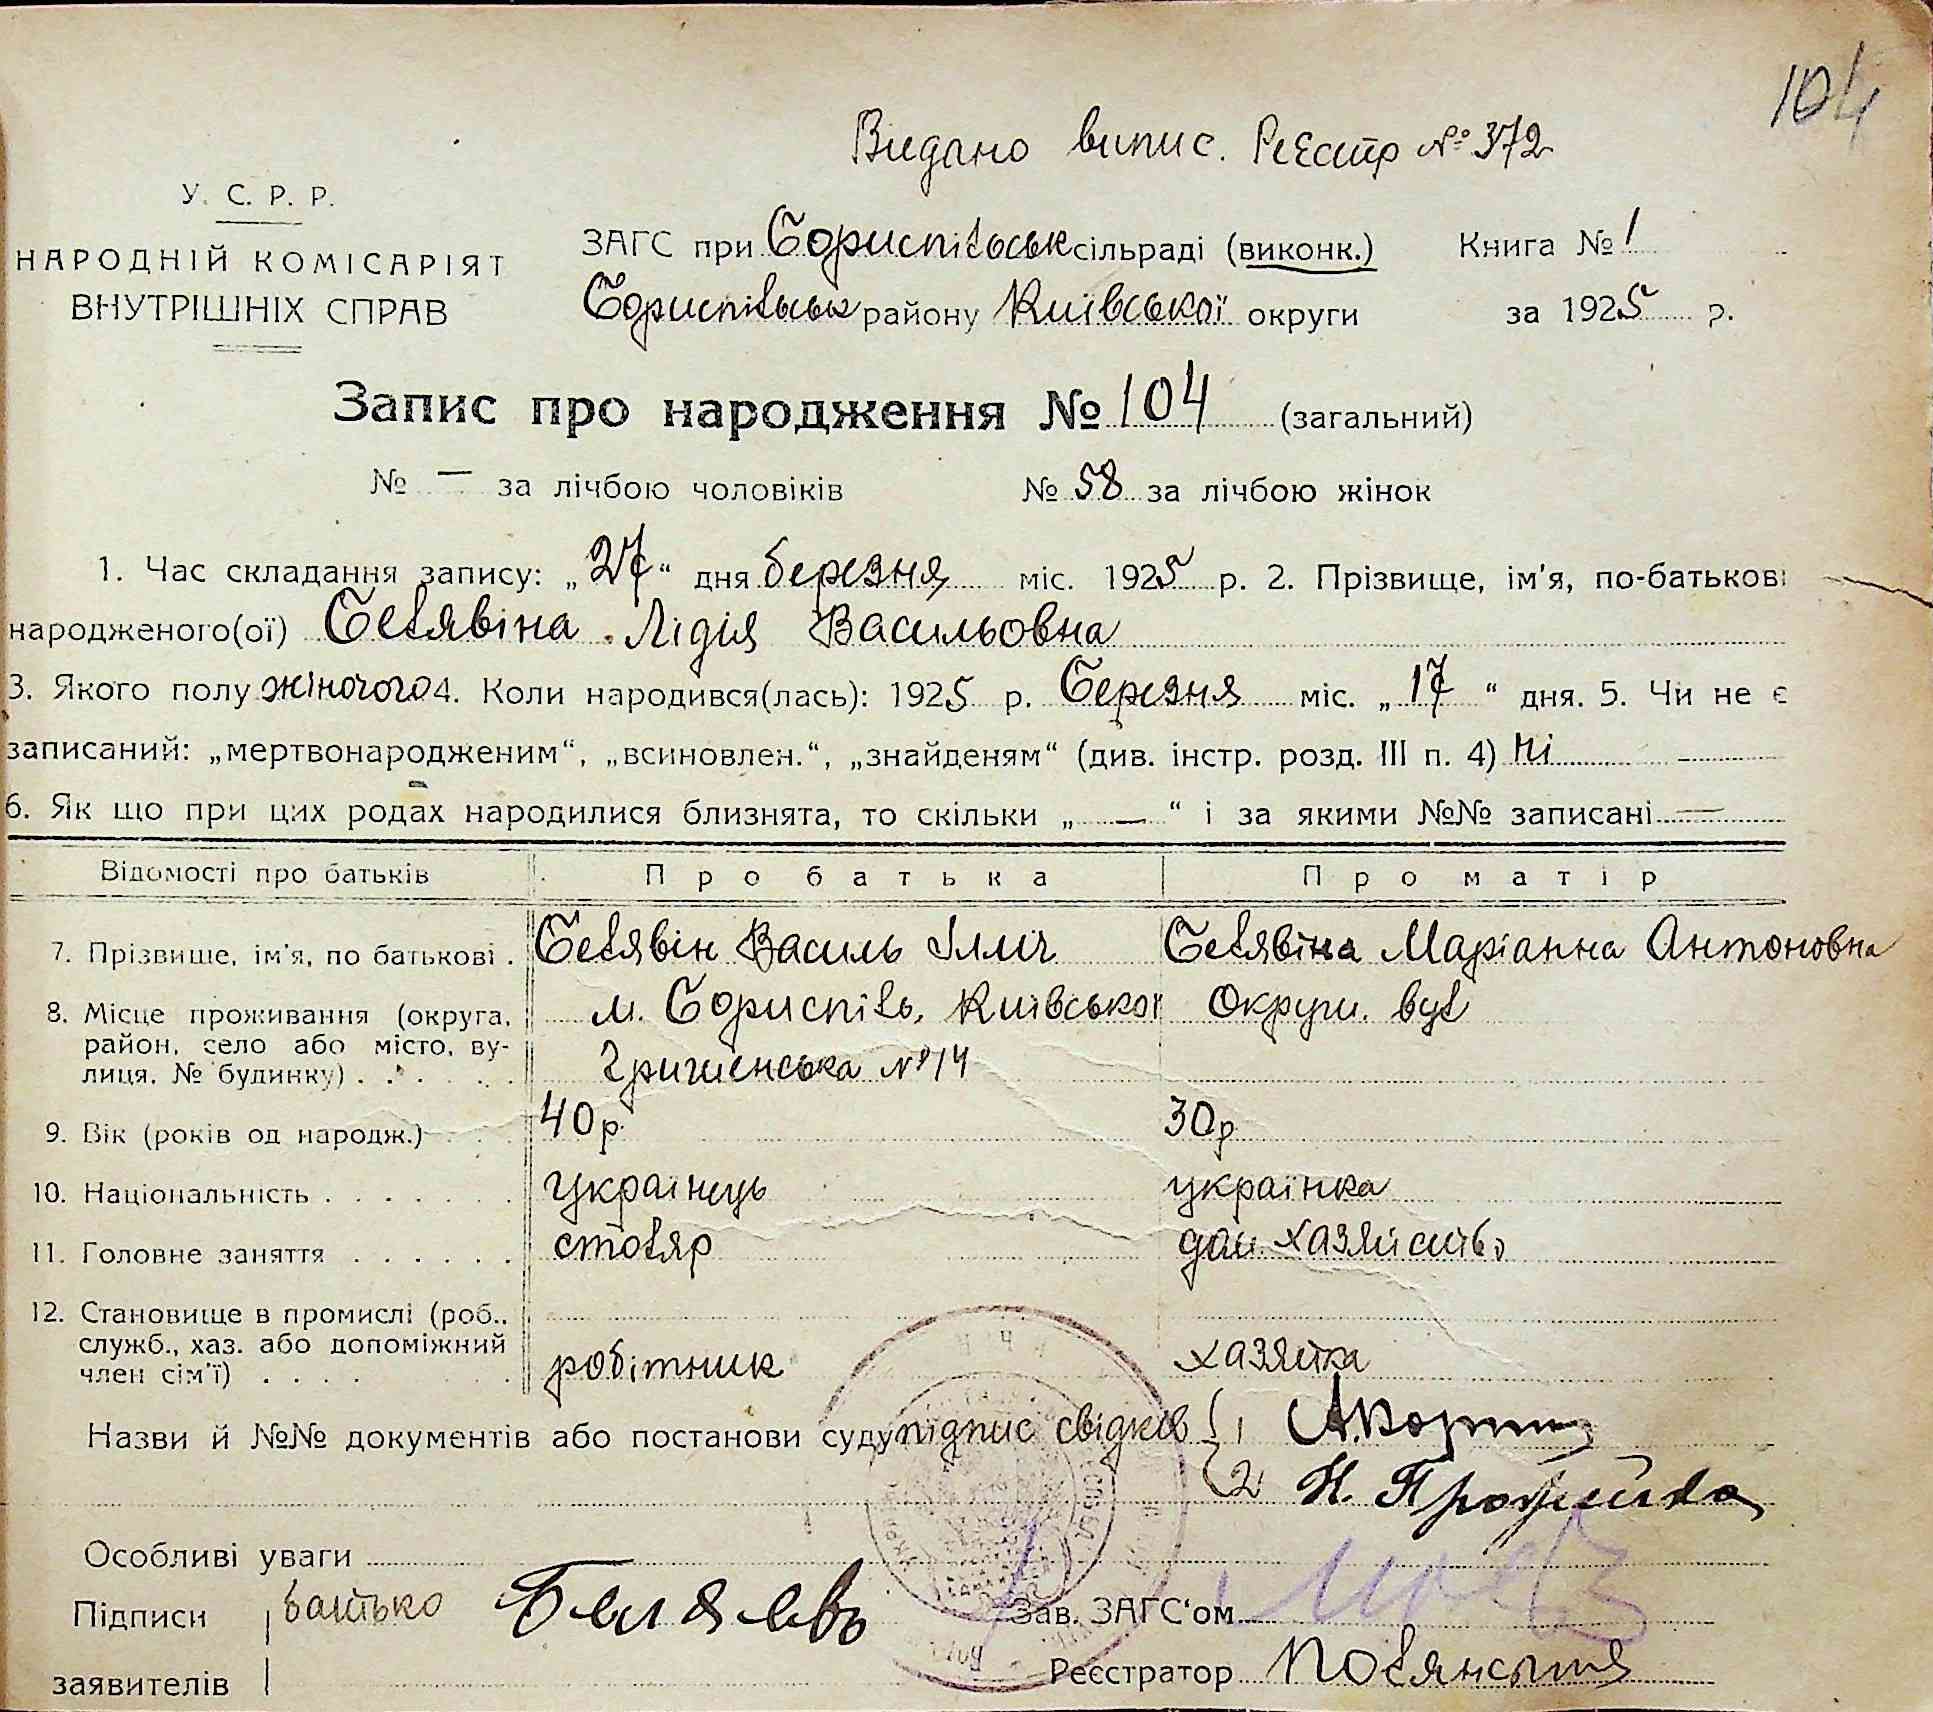 104
Видано випис. Реєстр № 372
У. С. Р. Р.
НАРОДНІЙ КОМІСАРІЯТ
ВНУТРІШНІХ СПРАВ
ЗАГС при Бориспільськ сільраді (виконк.) Книга № 1
Бориспільськ району Київської округи за 1925 р.
Запис про народження № 104 (загальний)
№ — за лічбою чоловіків № 58 за лічбою жінок
1. Час складання запису: „27“ дня березня міс. 1925 р. 2. Прізвище, ім'я, по-батькові
народженого(ої) Белявіна Лідія Васильовна
3. Якого полу жіночого 4. Коли народився(лась): 1925 р. Березня міс. „17“ дня. 5. Чи не є
записаний: „мертвонародженим“, „всиновлен.“, „знайденям“ (див. інстр. розд. III п. 4) ні —
6. Як що при цих родах народилися близнята, то скільки „—“ і за якими №№ записані —
Відомості про батьків Про батька Про матір
7. Прізвише, ім'я, по батькові . Белявін Василь Ілліч Белявіна Маріанна Антоновна
8. Місце проживання (округа, м. Бориспіль, Київської Округи. вул
район, село або місто, ву- Гришенська № 14
лиця, № будинку) . . . . .
9. Вік (років од народж.) . . . 40 р. 30 р
10. Національність . . . . . . . українець українка
11. Головне заняття . . . . . . столяр дом. хазяйство
12. Становище в промислі (роб.,
служб., хаз. або допоміжний
член сім'ї) . . . . робітник хазяйка
Назви й №№ документів або постанови суду підпис свідків { 1
2 Н.
Особливі уваги
Підписи батько Беляевь Зав. ЗАГС'ом
заявителів Реєстратор